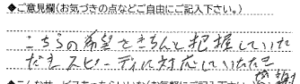 ◆ご意見欄(お気づきの点などご自由にご記入下さい。)
こちらの希望をきちんと把握していた
だきスピーディに対応していただき